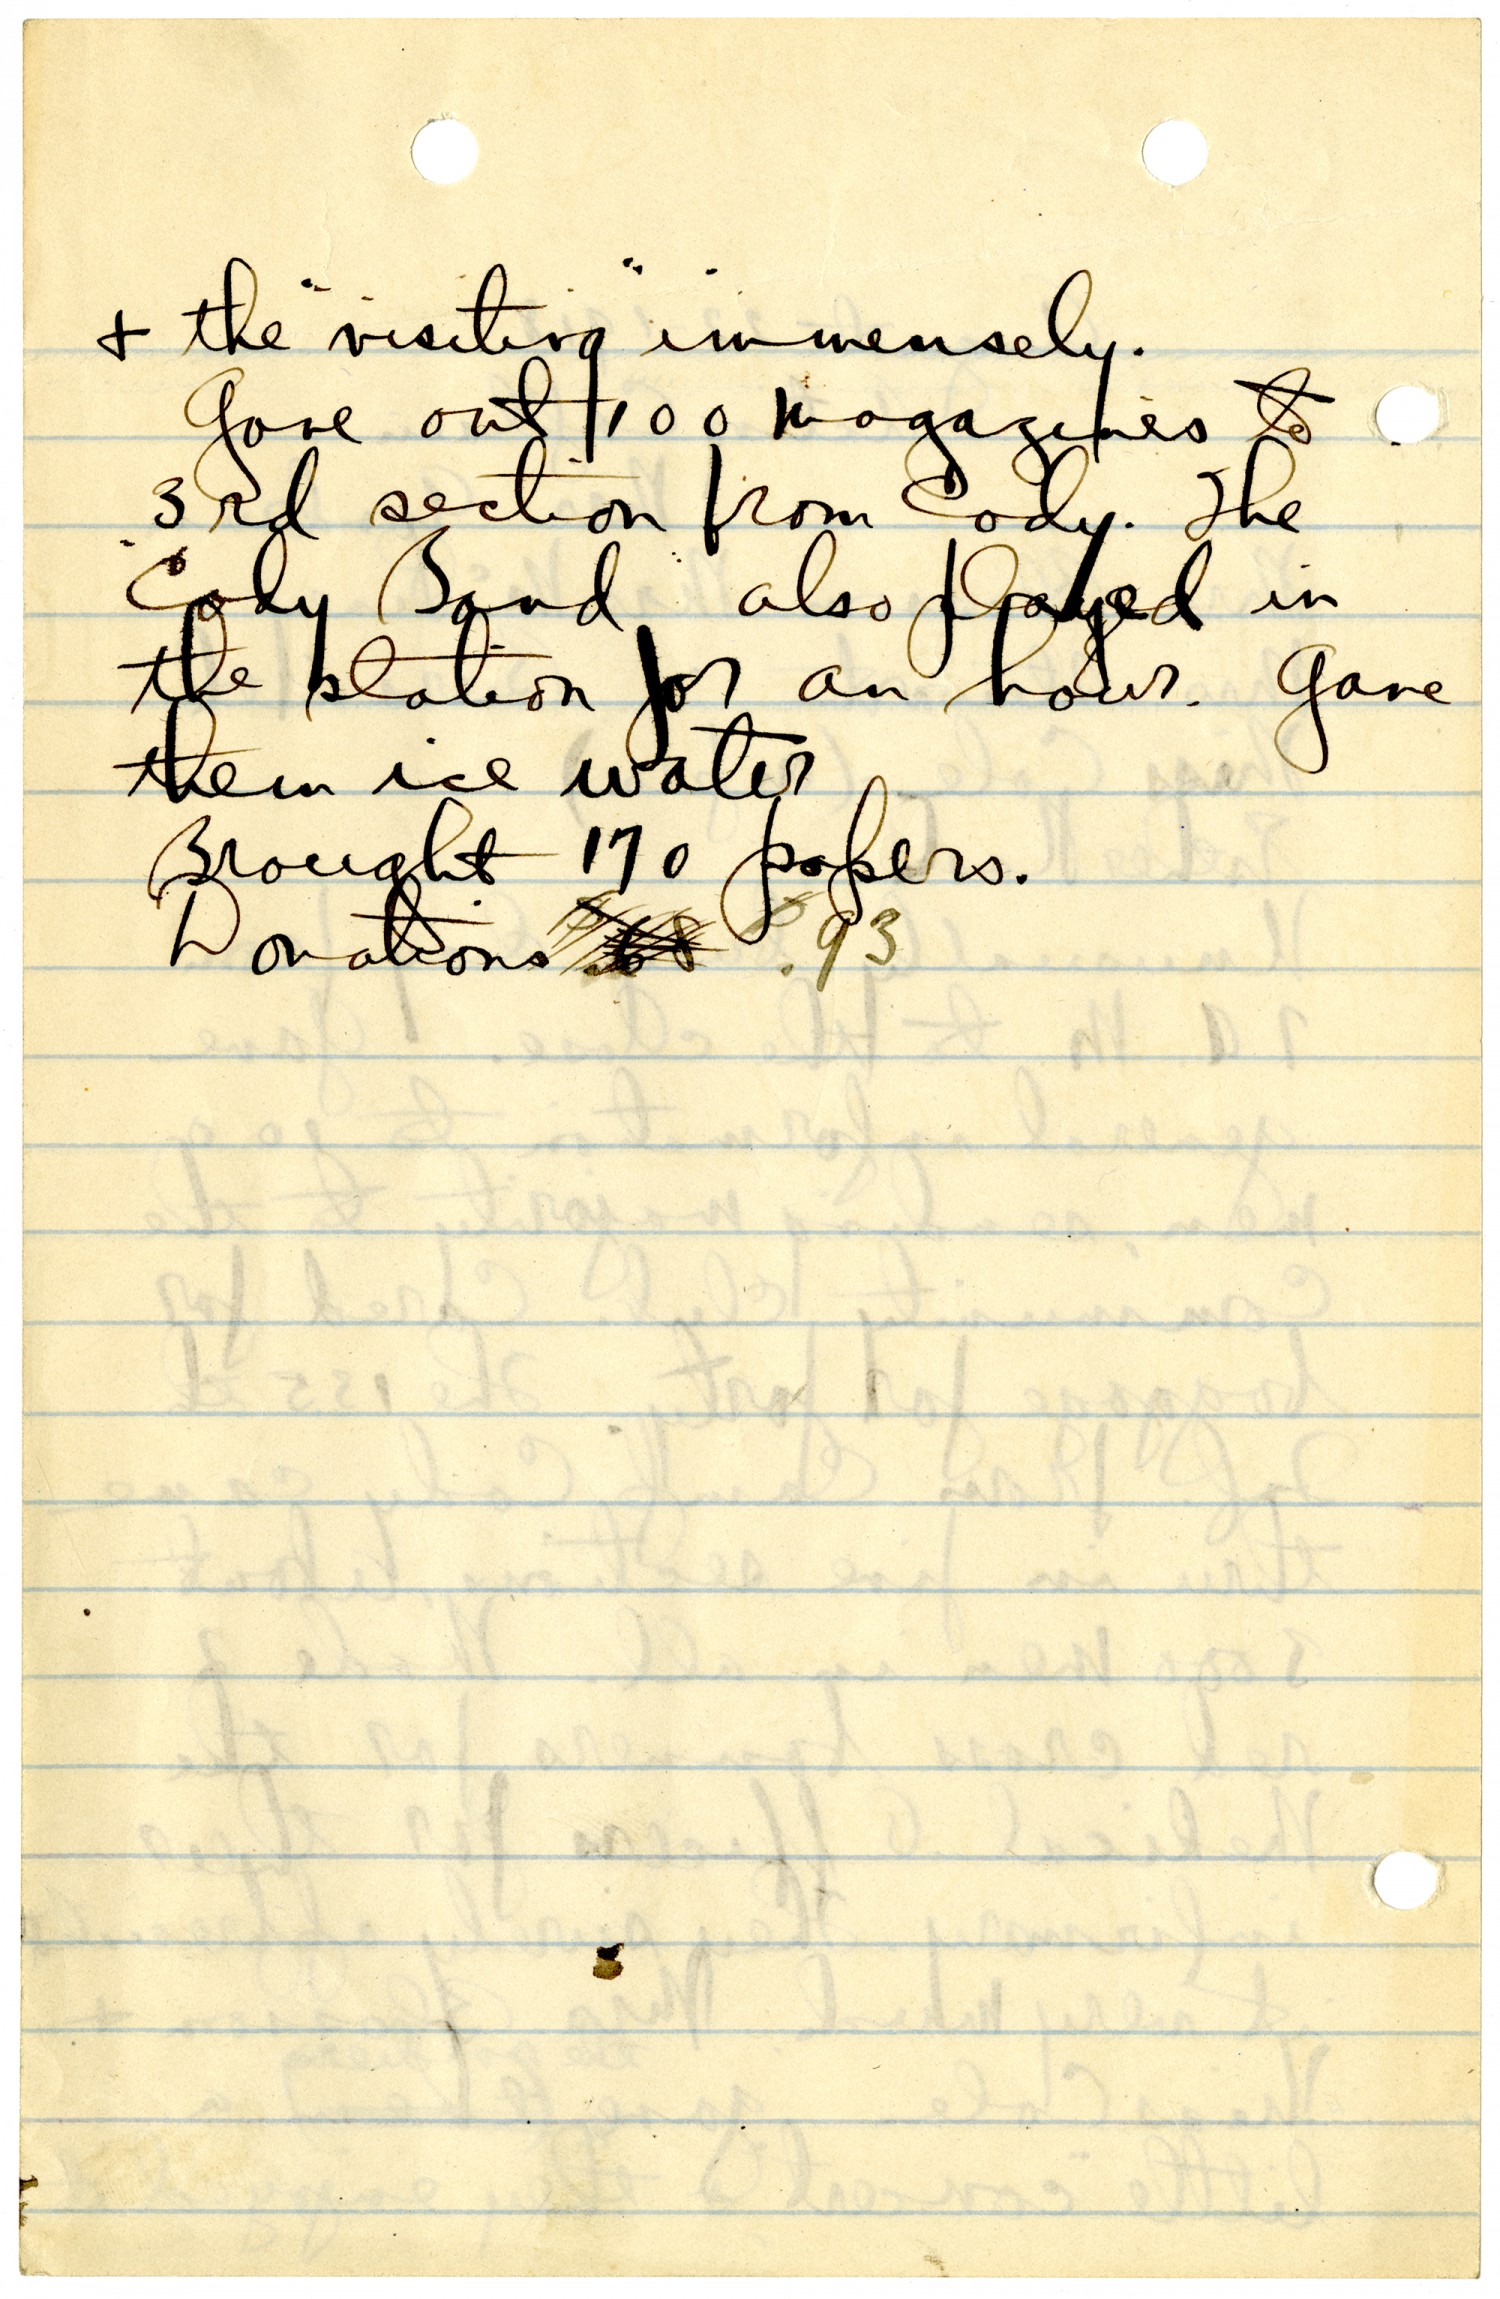 + the "visiting" immensely.
Gave out 100 magazines to
3rd section from Cody. The
"Cody Band" also played in
the station for an hour. Gave
them ice water
Brought 170 papers.
Donations .93